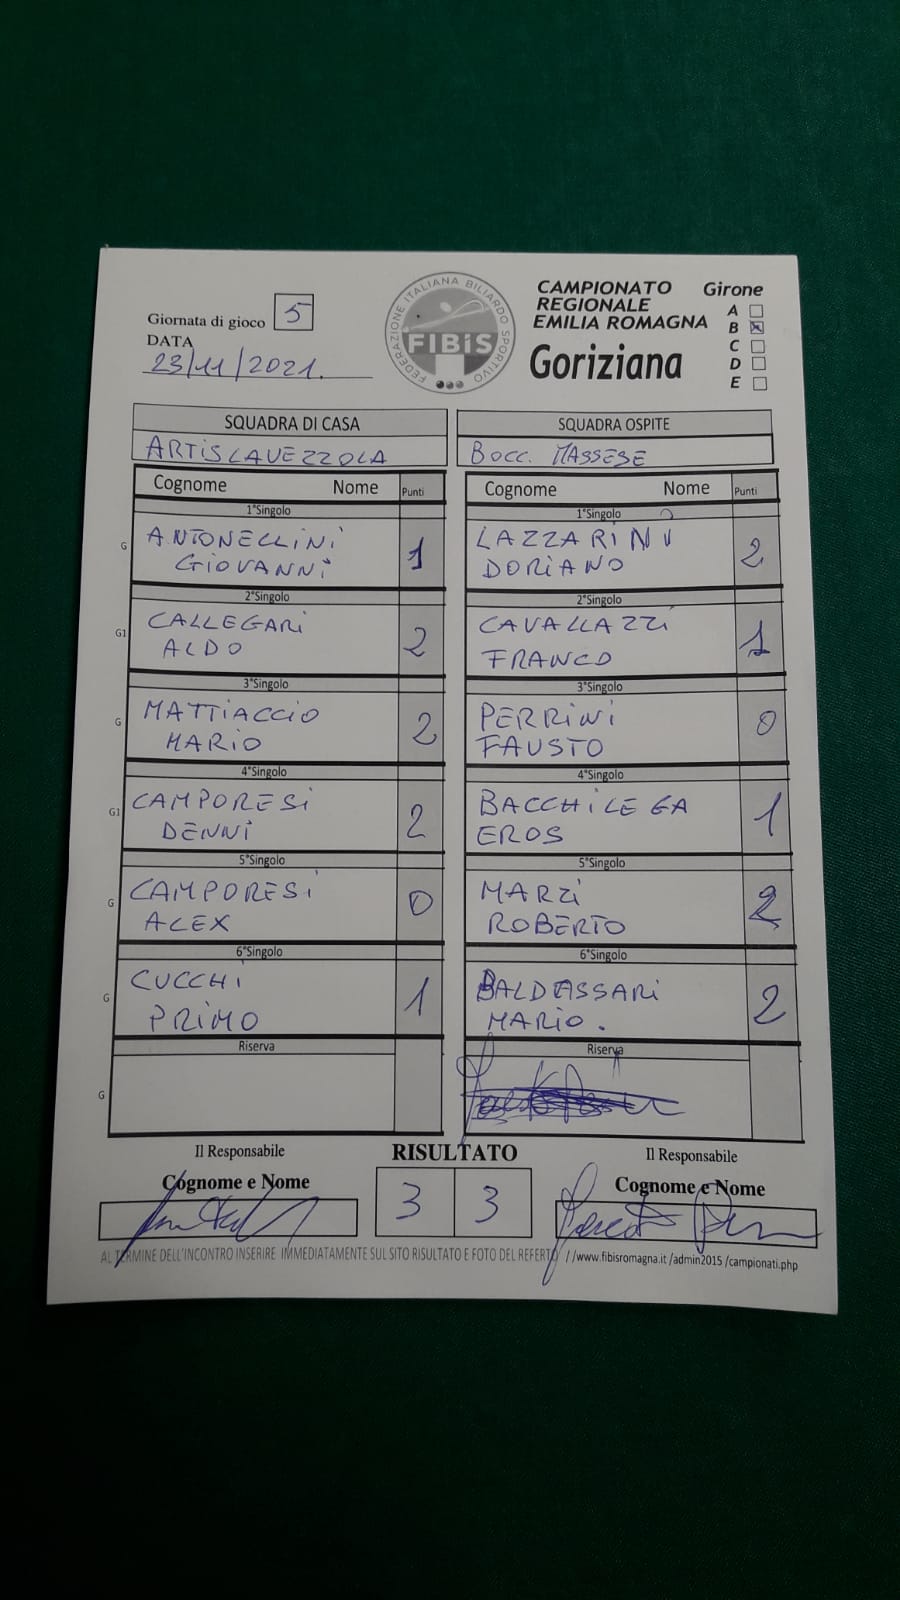 Giornata di gioco 5
DATA
23/11/2021.
FEDERAZIONE ITALIANA BILIARDO SPORTIVO
FIBiS
CAMPIONATO
REGIONALE
EMILIA ROMAGNA
Goriziana
Girone
A
B
C
D
E
SQUADRA DI CASA
ARTiSLAVEZZOLA
Cognome Nome Punti
1°Singolo
G ANTONELLiNi
GiOVANNi 1
2°Singolo
G1 CALLEGARi
ALDO 2
3°Singolo
G MATTiACCiO
MARiO 2
4°Singolo
G1 CAMPORESi
DENNi 2
5°Singolo
G CAMPORESi
ALEX 0
6°Singolo
G CUCCHi
PRiMO 1
Riserva
G
SQUADRA OSPITE
BOCC. MASSESE
Cognome Nome Punti
1°Singolo
LAZZARiNi
DORiANO 2
2°Singolo
CAVALLAZZi
FRANCO 1
3°Singolo
PERRiNi
FAUSTO 0
4°Singolo
BACCHiLEGA
EROS 1
5°Singolo
MARZi
ROBERTO 2
6°Singolo
BALDASSARi
MARiO. 2
Riserva
Il Responsabile
Cognome e Nome
RISULTATO
3 3
Il Responsabile
Cognome e Nome
AL TERMINE DELL'INCONTRO INSERIRE IMMEDIATAMENTE SUL SITO RISULTATO E FOTO DEL REFERTO //www.fibisromagna.it /admin2015 /campionati.php